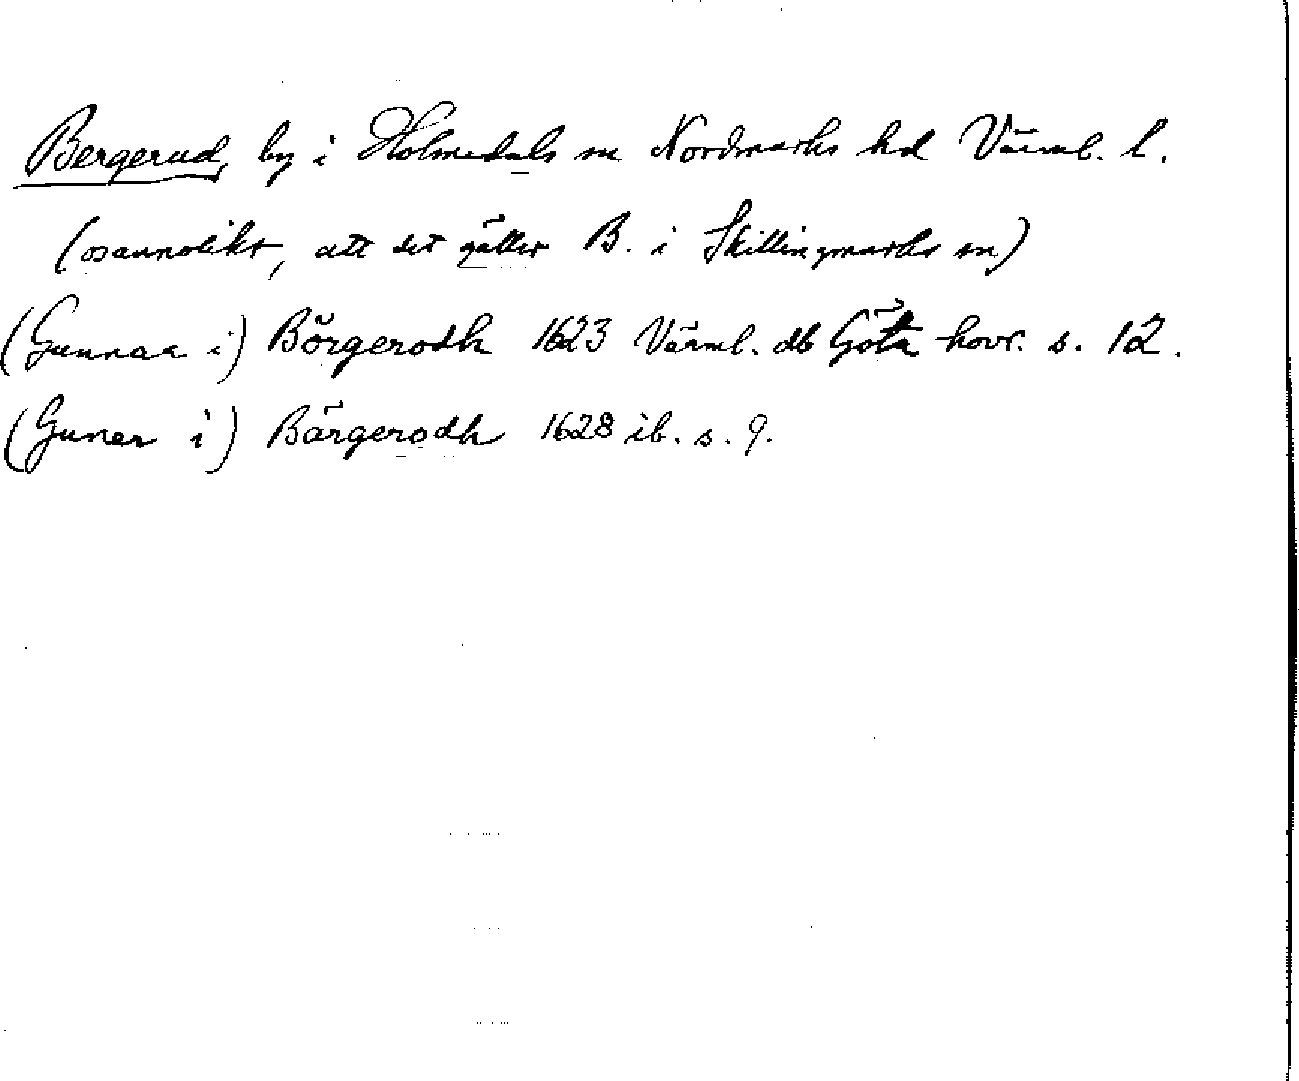 Bergerud, by i Holmedals sn Nordmarks hd Värml. l.
(osannolikt, att det gäller B. i Skillingmarks sn)
(Gunnar i) Börgerodh 1623 Värml. db Göta hovr. s. 12.
(Guner i) Bärgerodh 1628 ib. s. 9.